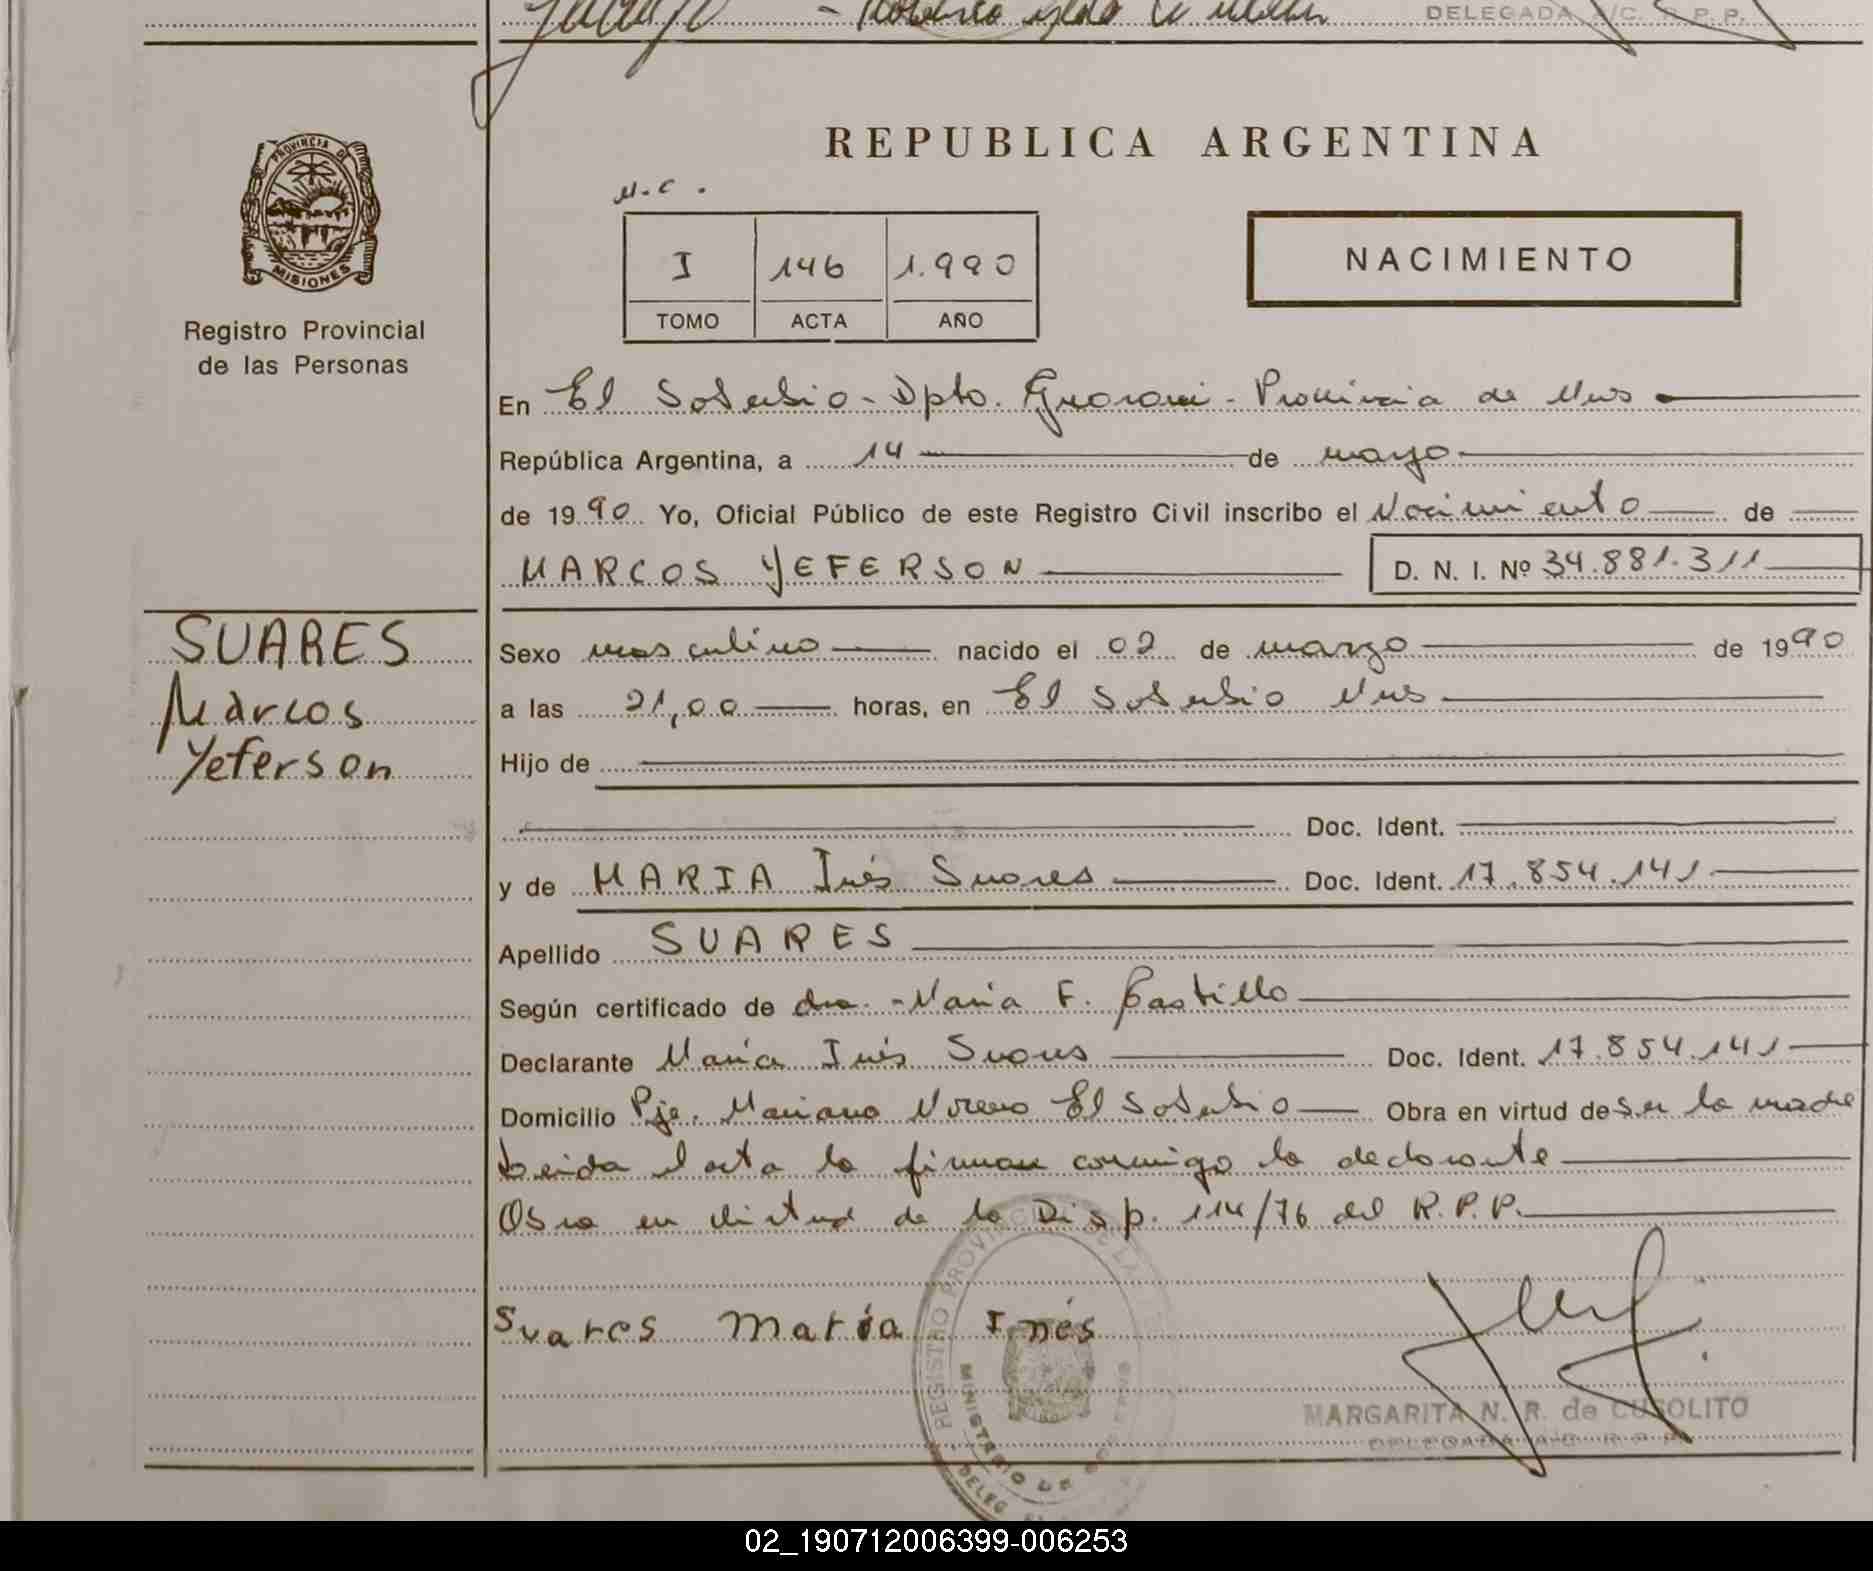 DELEGADA A/C. R.P.P.
PROVINCIA DE
MISIONES
Registro Provincial
de las Personas
REPUBLICA ARGENTINA
M.C.
I 146 1.990
TOMO ACTA AÑO
NACIMIENTO
En El Soberbio - Dpto. Guarani - Provincia de Mnes
República Argentina, a 14 de mayo
de 1990 Yo, Oficial Público de este Registro Civil inscribo el Nacimiento de
MARCOS YEFERSON D. N. I. Nº 34.881.311
SUARES
Marcos
Yeferson
Sexo masculino nacido el 02 de marzo de 1990
a las 21,00 horas, en El Soberbio Mnes
Hijo de
Doc. Ident.
y de MARIA Inés Suares Doc. Ident. 17.854.141
Apellido SUARES
Según certificado de dra. Maria F. Castillo
Declarante Maria Inés Suares Doc. Ident. 17.854.141
Domicilio Pje. Mariano Moreno El Soberbio Obra en virtud de ser la madre
Leida el acta la firman conmigo la declarante
Obra en virtud de la Disp. 114/76 del R.P.P.
Suares María Inés
REGISTRO PROVINCIAL DE LA
MINISTERIO DE GOBIERNO
DELEG
MARGARITA N. R. de CUSOLITO
DELEGADA A/C. R.P.P.
02_190712006399-006253